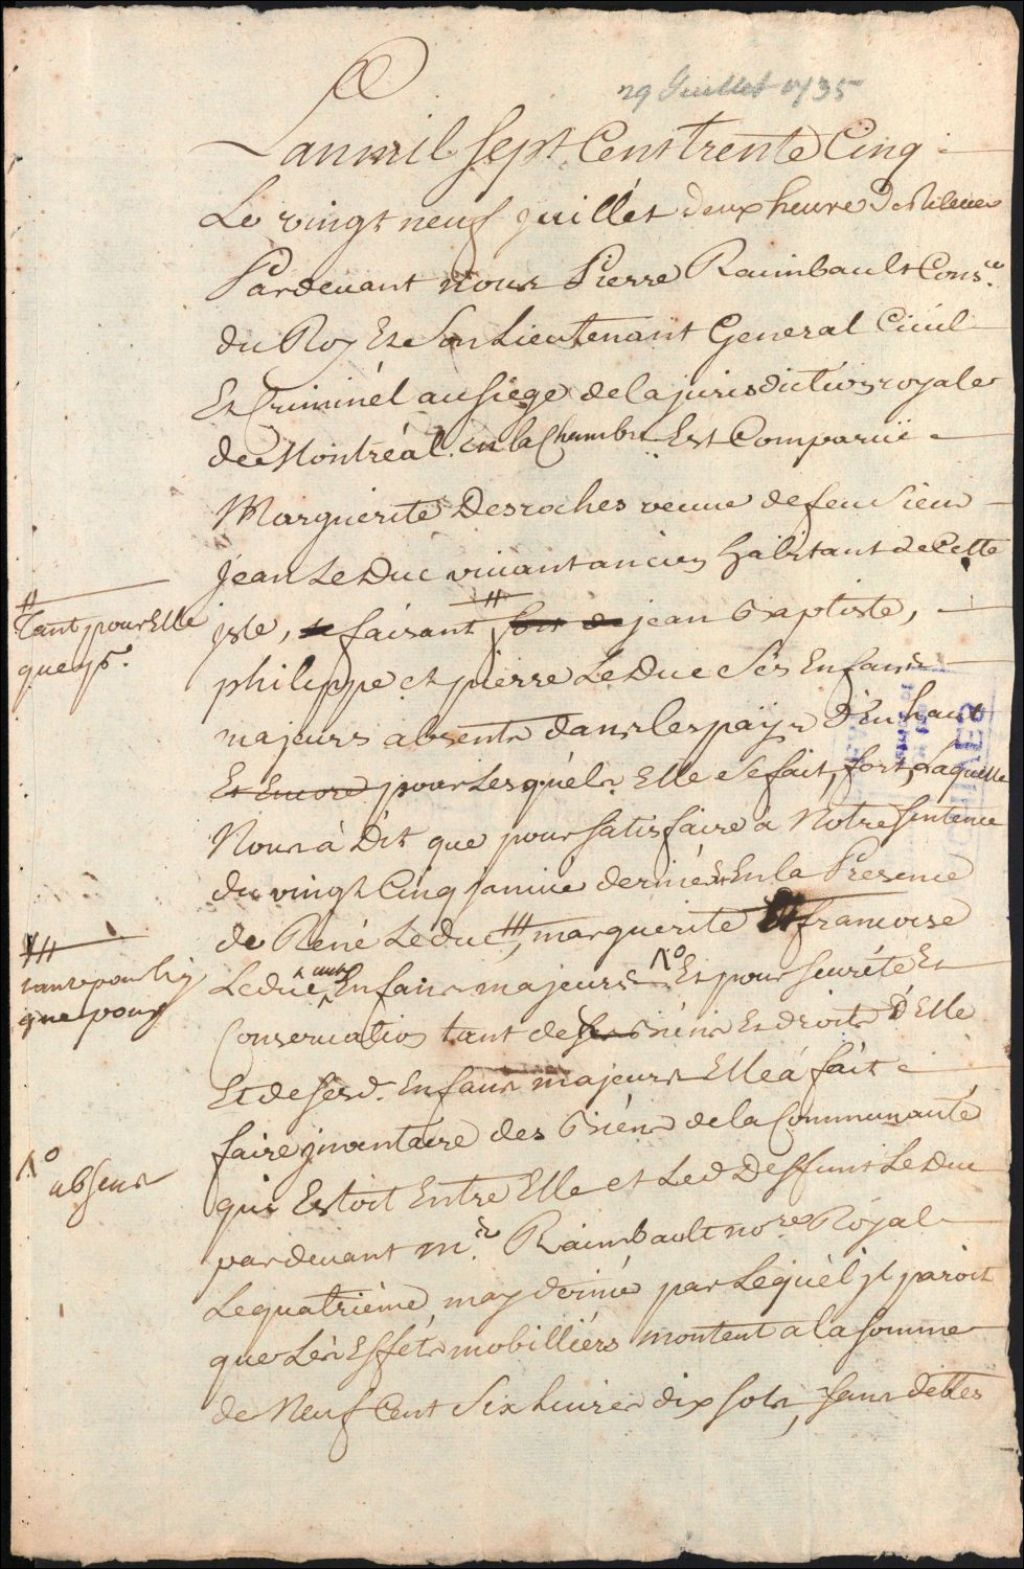 29 Juillet 1735
Lan mil sept Cent trente Cinq
Le vingt neuf juillet deux heure de Relevee
Pardevant nous Pierre Raimbault Cons.er
du Roy Et Son Lieutenant General Civil
Et Criminél au siege de la jurisdiction royale
de Montréal en la Chambre Est Comparüe
Marguerite Desroches veuve de feu Sieur
Jean Le Duc vivant ancien habitant de Cette
jsle, se faisant fort de jean Baptiste,
# Tant pour Elle
que pr.
philippe et pierre Le Duc Ses Enfans
majeurs absents dans les païs d'En haut
Et Encore pour Lesquéls Elle Se fait, fort, Laquelle
Nous à Dit que pour satisfaire a Notre sentence
du vingt Cinq janvier dernier En la Presence
de René Leduc #, marguerite Et francoise
# tant pour luy
que pour
Leduc aussi Enfans majeurs Λo Et pour seureté Et
Conservation tant de ses Biéns Et droits d'Elle
Et de sesd. Enfans majeurs Elle á fait
faire jnventaire des Biéns de la Communauté
Λo absens
qui Estoit Entre Elle et Led Deffunt Le Duc
pardevant m.e Raimbault no.re Royal
Le quatriéme may dernier par Lequél jl paroit
que Lés Efféts mobilliérs montent a la somme
de Neuf Cent Six livres dix sols, sans dettes